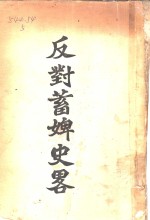 反對蓄婢史畧